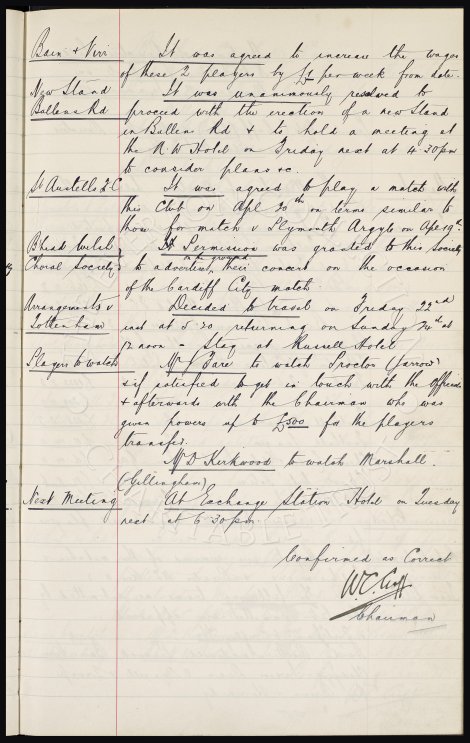 Bain & Virr It was agreed to increase the wages
of these 2 players by £1 per week from date.
New Stand It was unanimously resolved to
Bullens Rd proceed with the erection of a new Stand
in Bullens Rd & to hold a meeting at
the N W Hotel on Friday next at 4.30pm
to consider plans &c.
St Austells F.C It was agreed to play a match with
this Club on Apl 20th on terms similar to
those for match v Plymouth Argyle on Apl 19th.
Bhead Welsh Permission was granted to this Society
on the ground
Choral Society to advertise their concert on the occasion
of the Cardiff City match.
Arrangements v Decided to travel on Friday 22nd
Tottenham inst at 5.20 returning on Sunday 24th at
12 noon - Stay at Russell Hotel
Players to watch Mr J Fare to watch Proctor (Jarrow)
& if satisfied to get in touch with the Officials
& afterwards with the Chairman who was
given powers up to £500 for the players
transfer.
Mr D Kirkwood to watch Marshall.
(Gillingham)
Next Meeting At Exchange Station Hotel on Tuesday
next at 6.30pm.
Confirmed as Correct
W.C. Cuff
Chairman